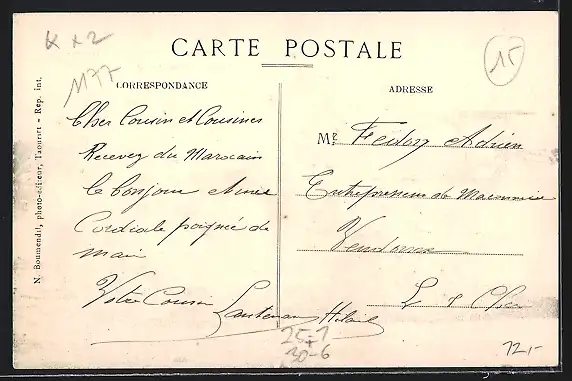 K x 2
1177
15
CARTE POSTALE
CORRESPONDANCE
ADRESSE
Cher Cousin et Cousines
Recevez du Marocain
le bonjour et une
Cordiale poignée de
main
Votre Cousin
Hilaire
Mr Adrien
Entrepreneur de Maconnerie
Vendome
L & Cher
N. Boumendil, photo-éditeur, Taourirt - Rep. int.
25-1
30-6
12,-